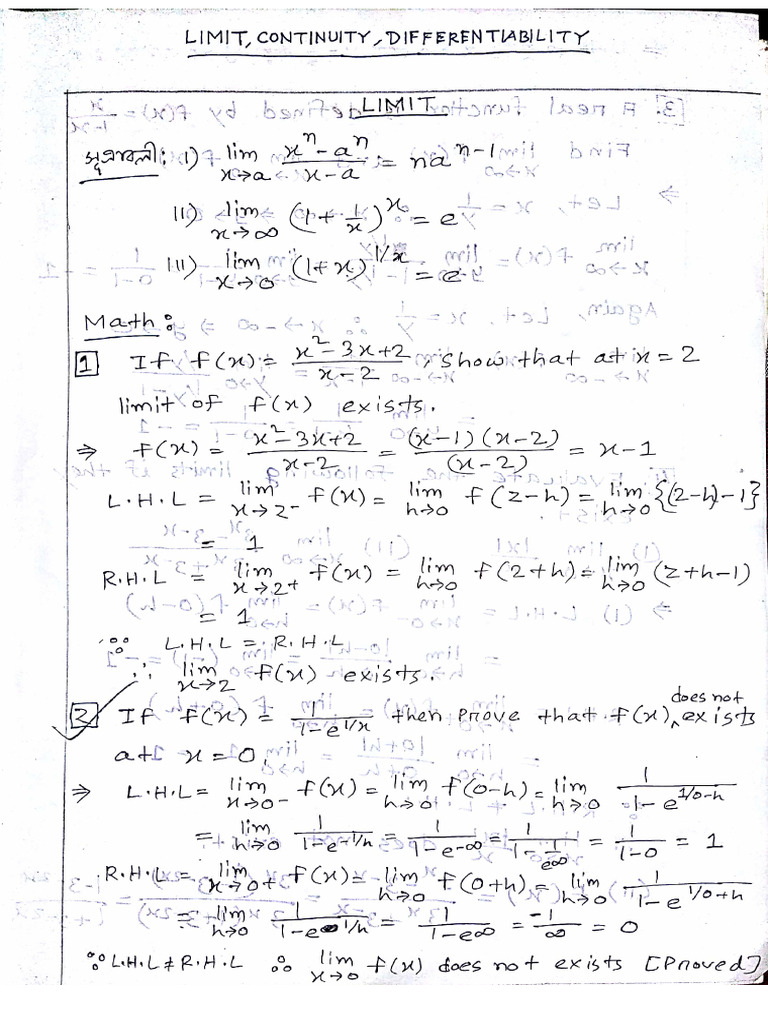 LIMIT, CONTINUITY, DIFFERENTIABILITY
LIMIT
সূত্রাবলী: i) lim x→a (xⁿ - aⁿ)/(x - a) = na^(n-1)
ii) lim x→∞ (1 + 1/x)^x = e
iii) lim x→0 (1+x)^(1/x) = e
Math:
1 If f(x) = (x² - 3x + 2)/(x - 2), show that at x = 2
limit of f(x) exists.
⇒ f(x) = (x² - 3x + 2)/(x - 2) = (x-1)(x-2)/(x-2) = x - 1
L.H.L = lim x→2- f(x) = lim h→0 f(2-h) = lim h→0 {(2-h)-1}
= 1
R.H.L = lim x→2+ f(x) = lim h→0 f(2+h) = lim h→0 (2+h-1)
= 1
∵ L.H.L = R.H.L
∴ lim x→2 f(x) exists.
2 If f(x) = 1/(1 - e^(1/x)) then prove that f(x) does not exists
at x = 0.
⇒ L.H.L = lim x→0- f(x) = lim h→0 f(0-h) = lim h→0 1/(1 - e^(1/0-h))
= lim h→0 1/(1 - e^(-1/h)) = 1/(1 - e^(-∞)) = 1/(1 - 1/e^∞) = 1/(1-0) = 1
R.H.L = lim x→0+ f(x) = lim h→0 f(0+h) = lim h→0 1/(1 - e^(1/0+h))
= lim h→0 1/(1 - e^(1/h)) = 1/(1 - e^∞) = -1/∞ = 0
∵ L.H.L ≠ R.H.L ∴ lim x→0 f(x) does not exists [Proved]